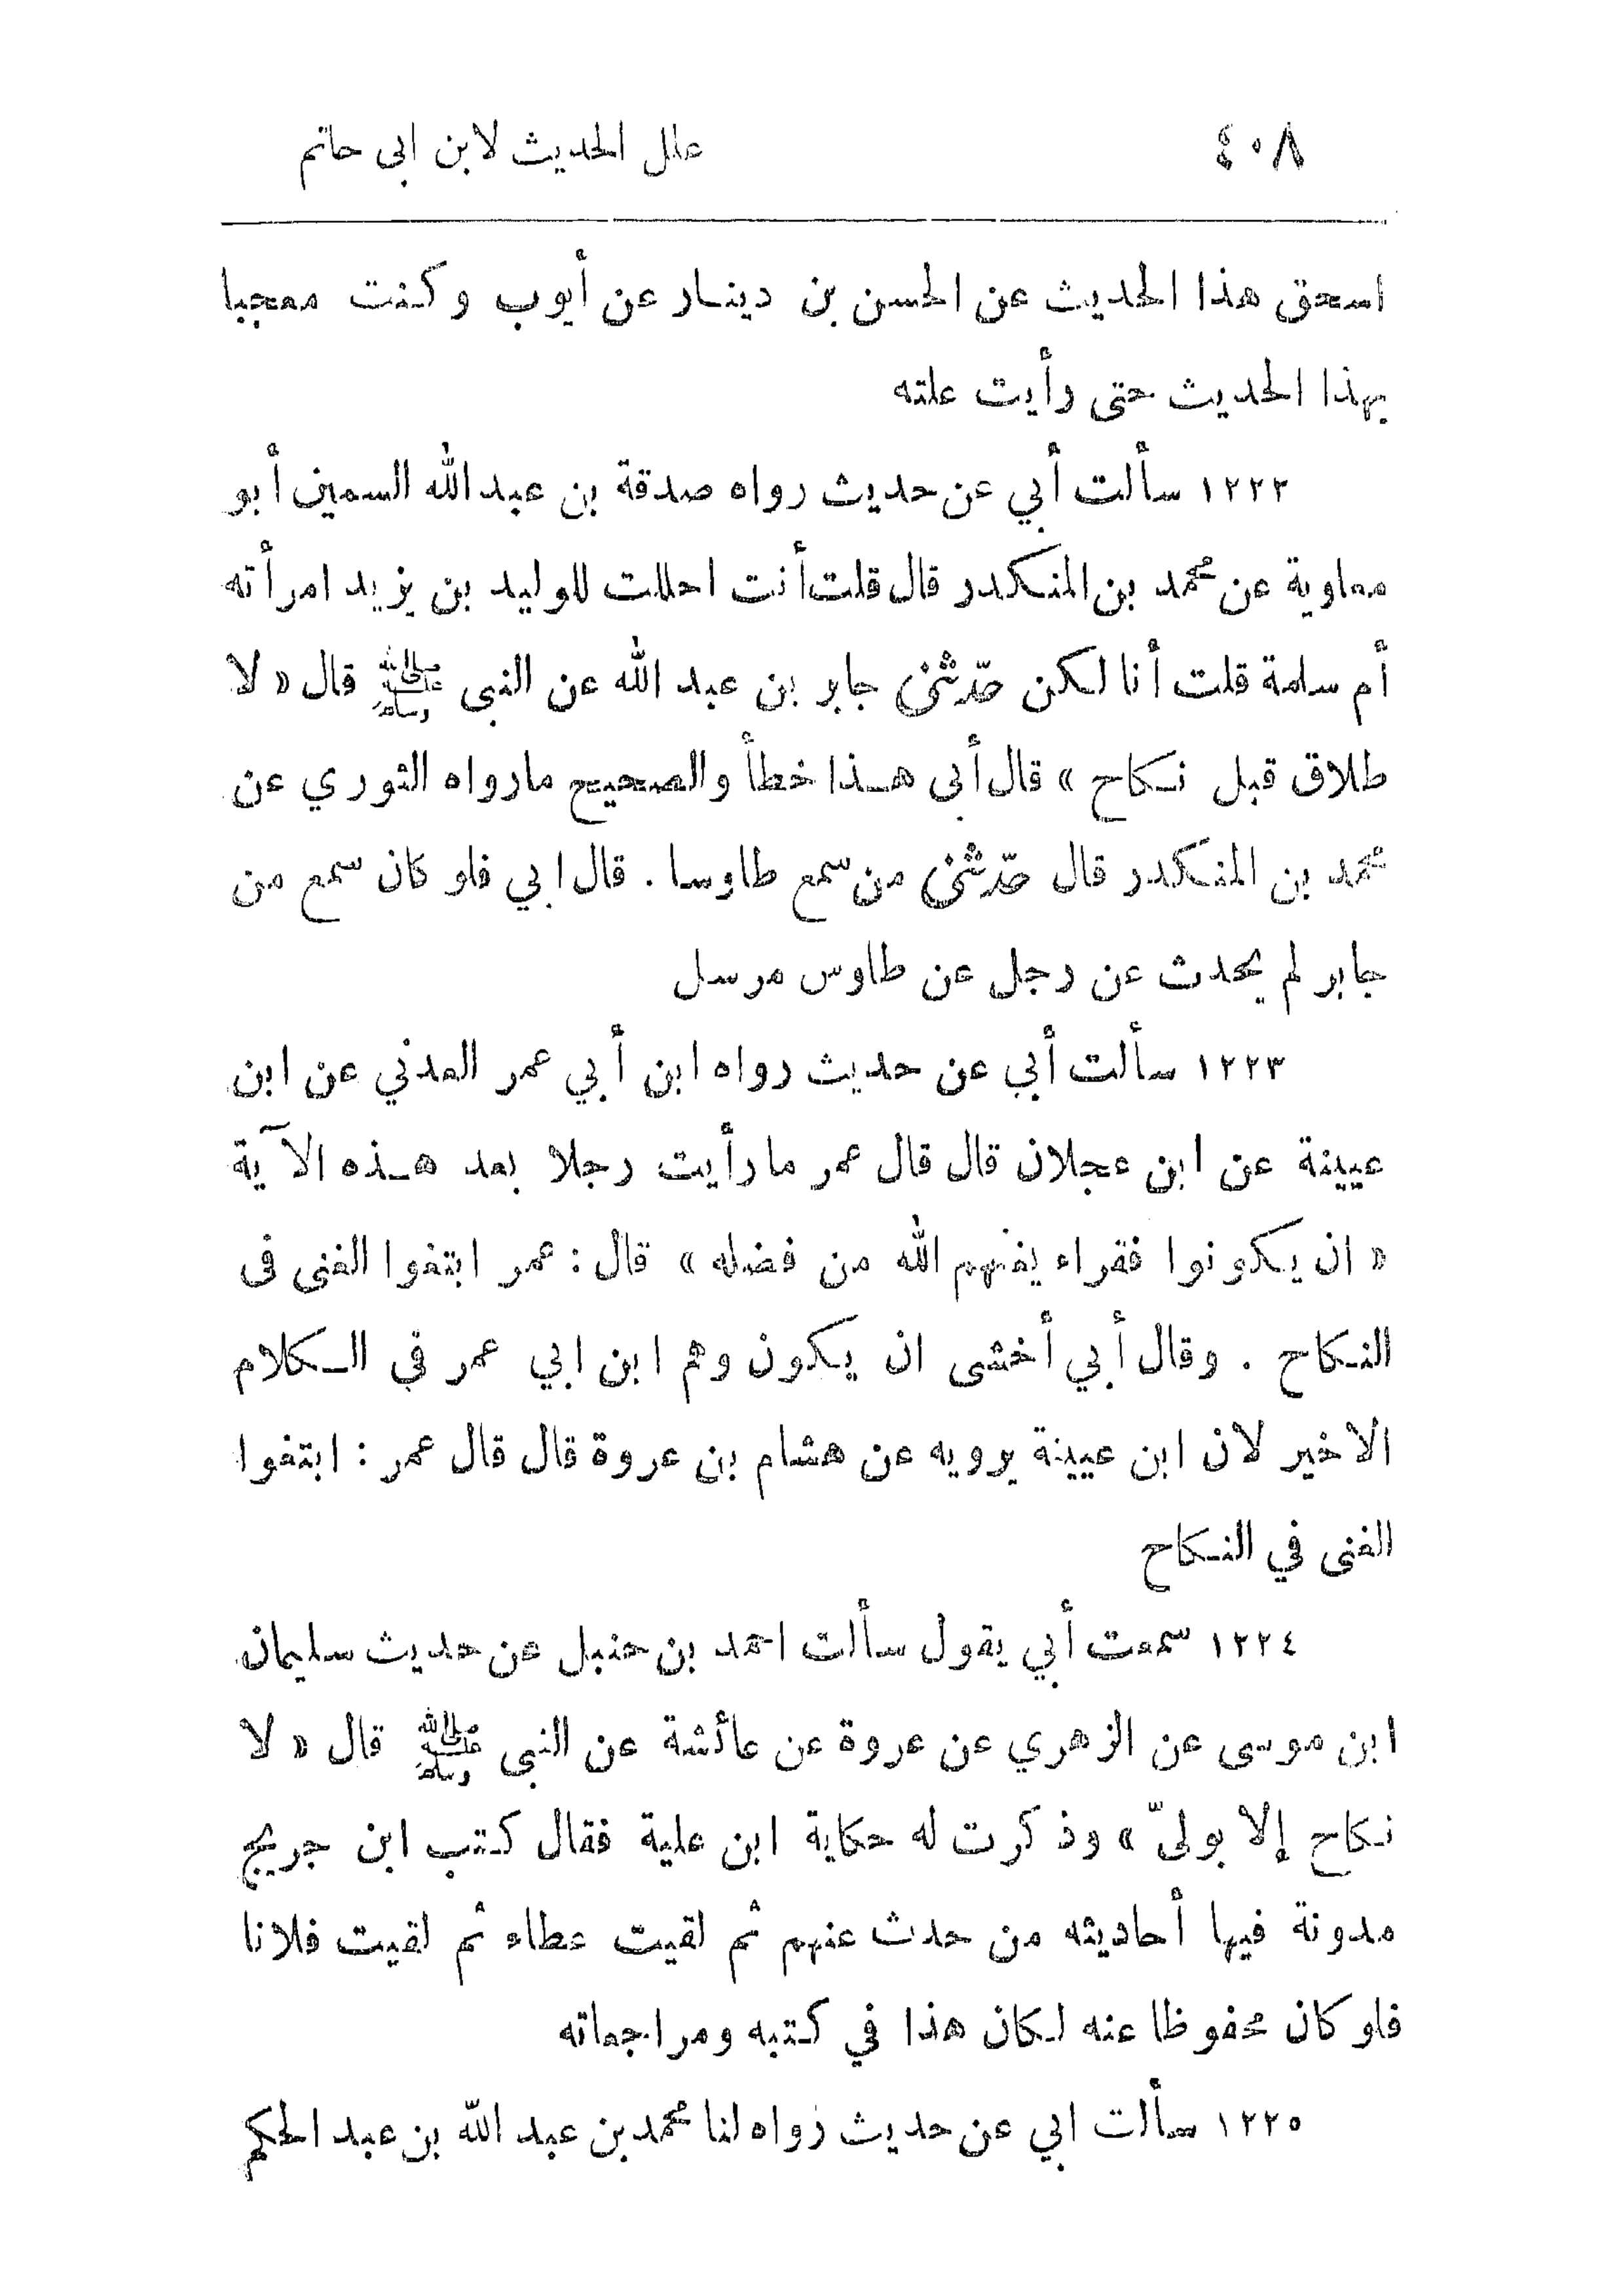 ٤٠٨ علل الحديث لابن ابى حاتم
اسحق هذا الحديث عن الحسن بن دينار عن أيوب وكنت معجبا
بهذا الحديث حتى رأيت علته
١٢٢٢ سألت أبي عن حديث رواه صدقة بن عبد الله السمين أبو
معاوية عن محمد بن المنكدر قال قلت أنت احللت للوليد بن يزيد امرأته
أم سلمة قلت أنا لكن حدّثنى جابر بن عبد الله عن النبى ﷺ قال « لا
طلاق قبل نكاح » قال أبى هذا خطأ والصحيح مارواه الثوري عن
محمد بن المنكدر قال حدّثنى من سمع طاوسا . قال ابي فلو كان سمع من
جابر لم يحدث عن رجل عن طاوس مرسل
١٢٢٣ سألت أبي عن حديث رواه ابن أبي عمر العدني عن ابن
عيينة عن ابن عجلان قال قال عمر ما رأيت رجلا بعد هذه الآية
« ان يكونوا فقراء يغنهم الله من فضله » قال : عمر ابتغوا الغنى فى
النكاح . وقال أبي أخشى ان يكون وهم ابن ابي عمر في الكلام
الاخير لان ابن عيينة يرويه عن هشام بن عروة قال قال عمر : ابتغوا
الغنى في النكاح
١٢٢٤ سمعت أبي يقول سألت احمد بن حنبل عن حديث سليمان
ابن موسى عن الزهري عن عروة عن عائشة عن النبى ﷺ قال « لا
نكاح إلا بولىّ » وذكرت له حكاية ابن علية فقال كتب ابن جريج
مدونة فيها أحاديثه من حدث عنهم ثم لقيت عطاء ثم لقيت فلانا
فلو كان محفوظا عنه لكان هذا في كتبه ومراجعاته
١٢٢٥ سألت ابي عن حديث رواه لنا محمد بن عبد الله بن عبد الحكم